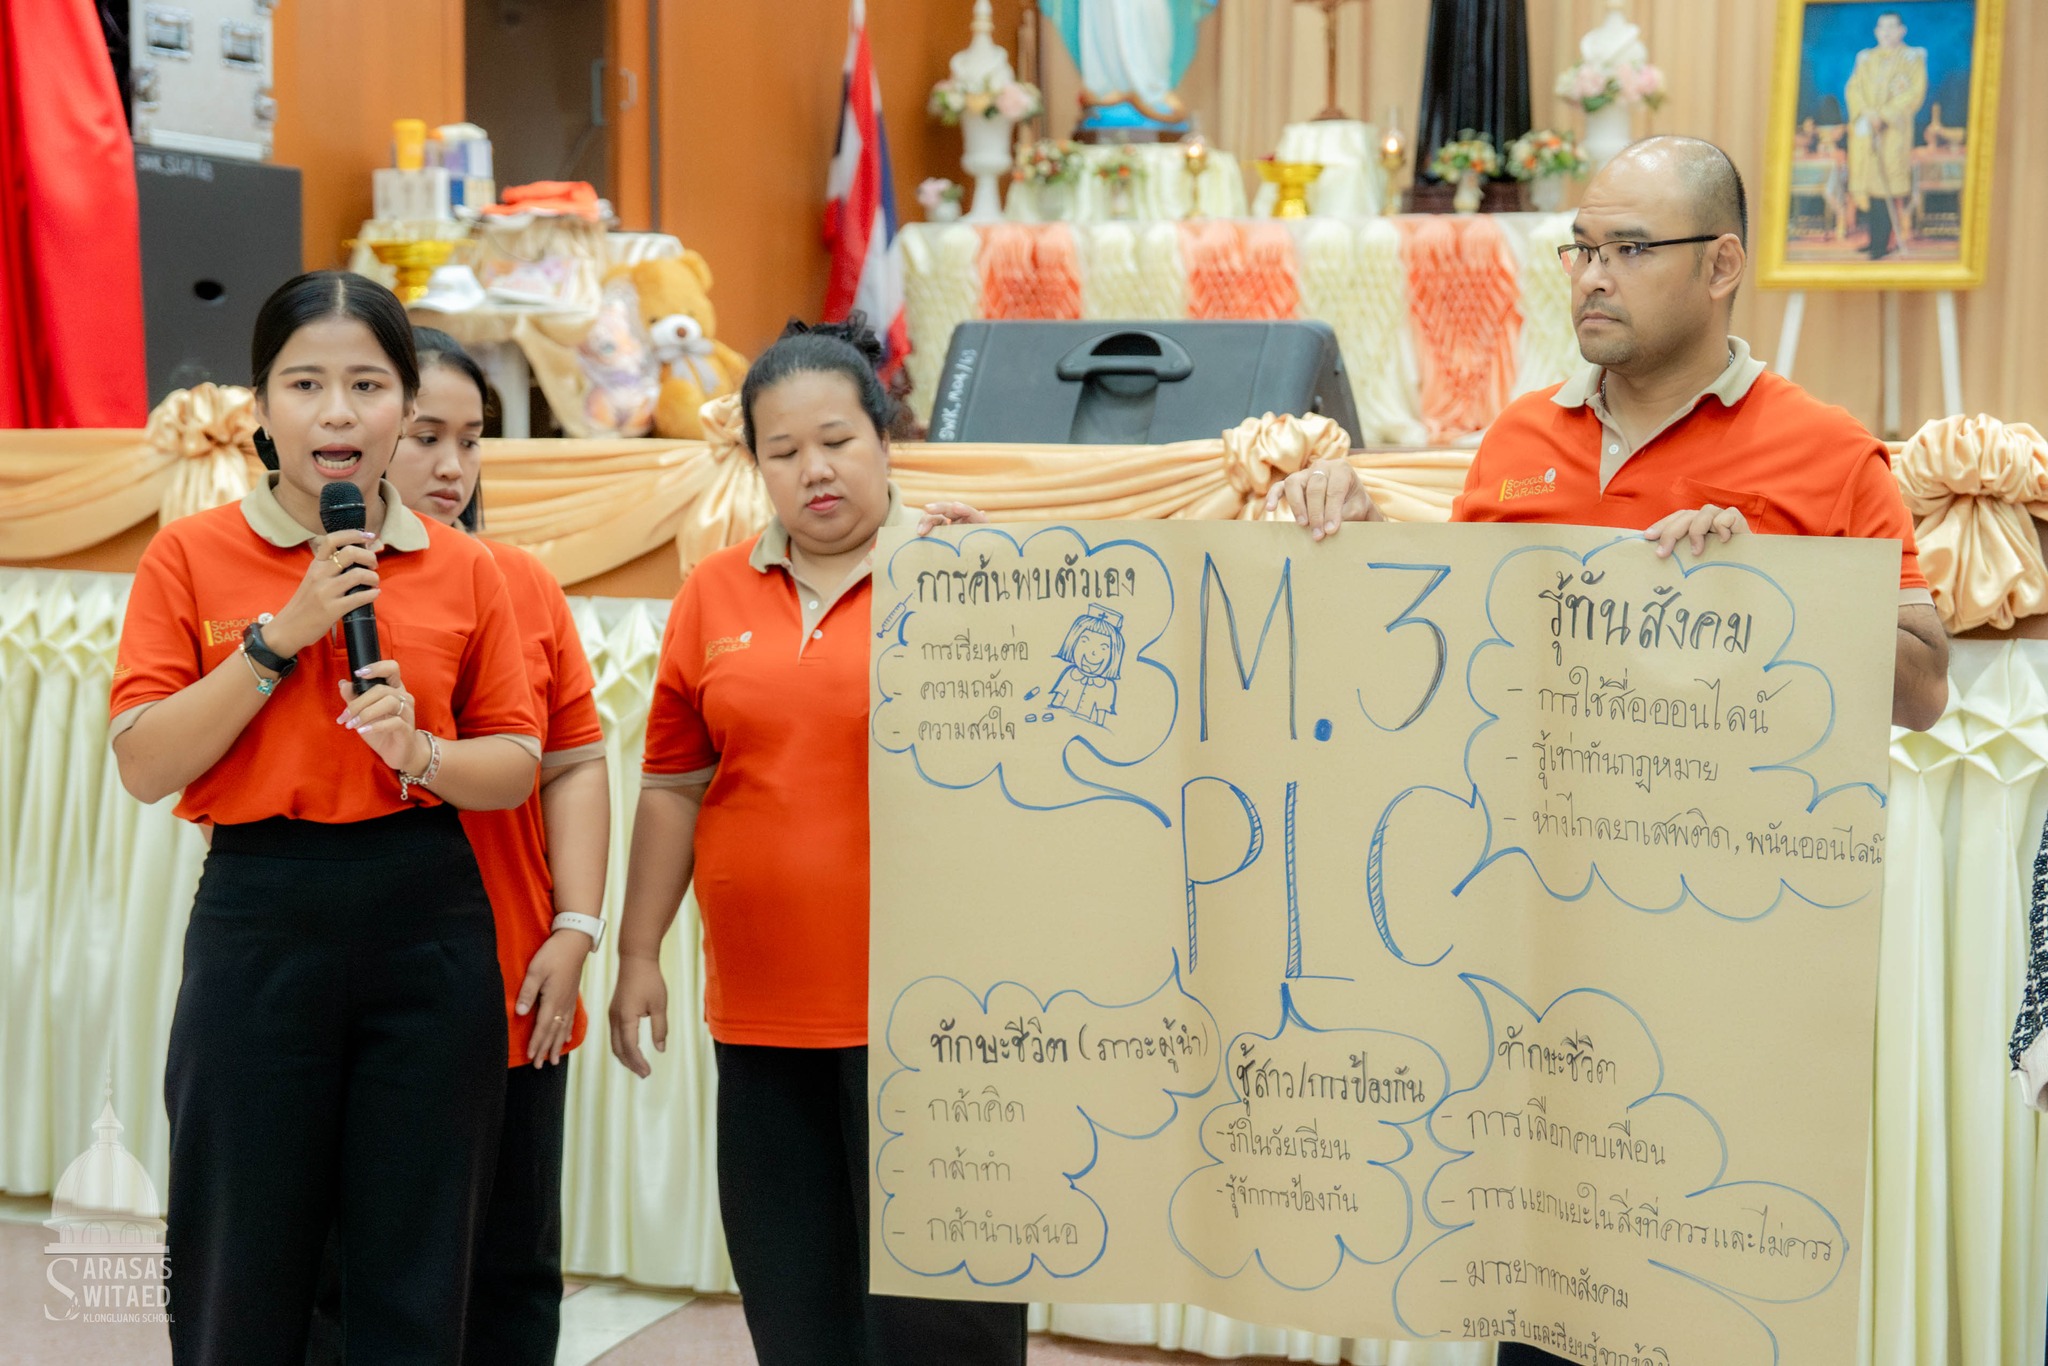 SWK.SUM
SWK.ท.04/63
SCHOOLS
SARASAS
SCHOOLS
SARASAS
SCHOOLS
SARASAS
M.3
PLC
การค้นพบตัวเอง
- การเรียนต่อ
- ความถนัด
- ความสนใจ
รู้ทันสังคม
- การใช้สื่อออนไลน์
- รู้เท่าทันกฎหมาย
- ห่างไกลยาเสพติด, พนันออนไลน์
ทักษะชีวิต (ภาวะผู้นำ)
- กล้าคิด
- กล้าทำ
- กล้านำเสนอ
ชู้สาว/การป้องกัน
- รักในวัยเรียน
- รู้จักการป้องกัน
ทักษะชีวิต
- การเลือกคบเพื่อน
- การแยกแยะในสิ่งที่ควรและไม่ควร
- มารยาททางสังคม
- ยอมรับและเรียนรู้จาก
SARASAS
WITAED
KLONGLUANG SCHOOL